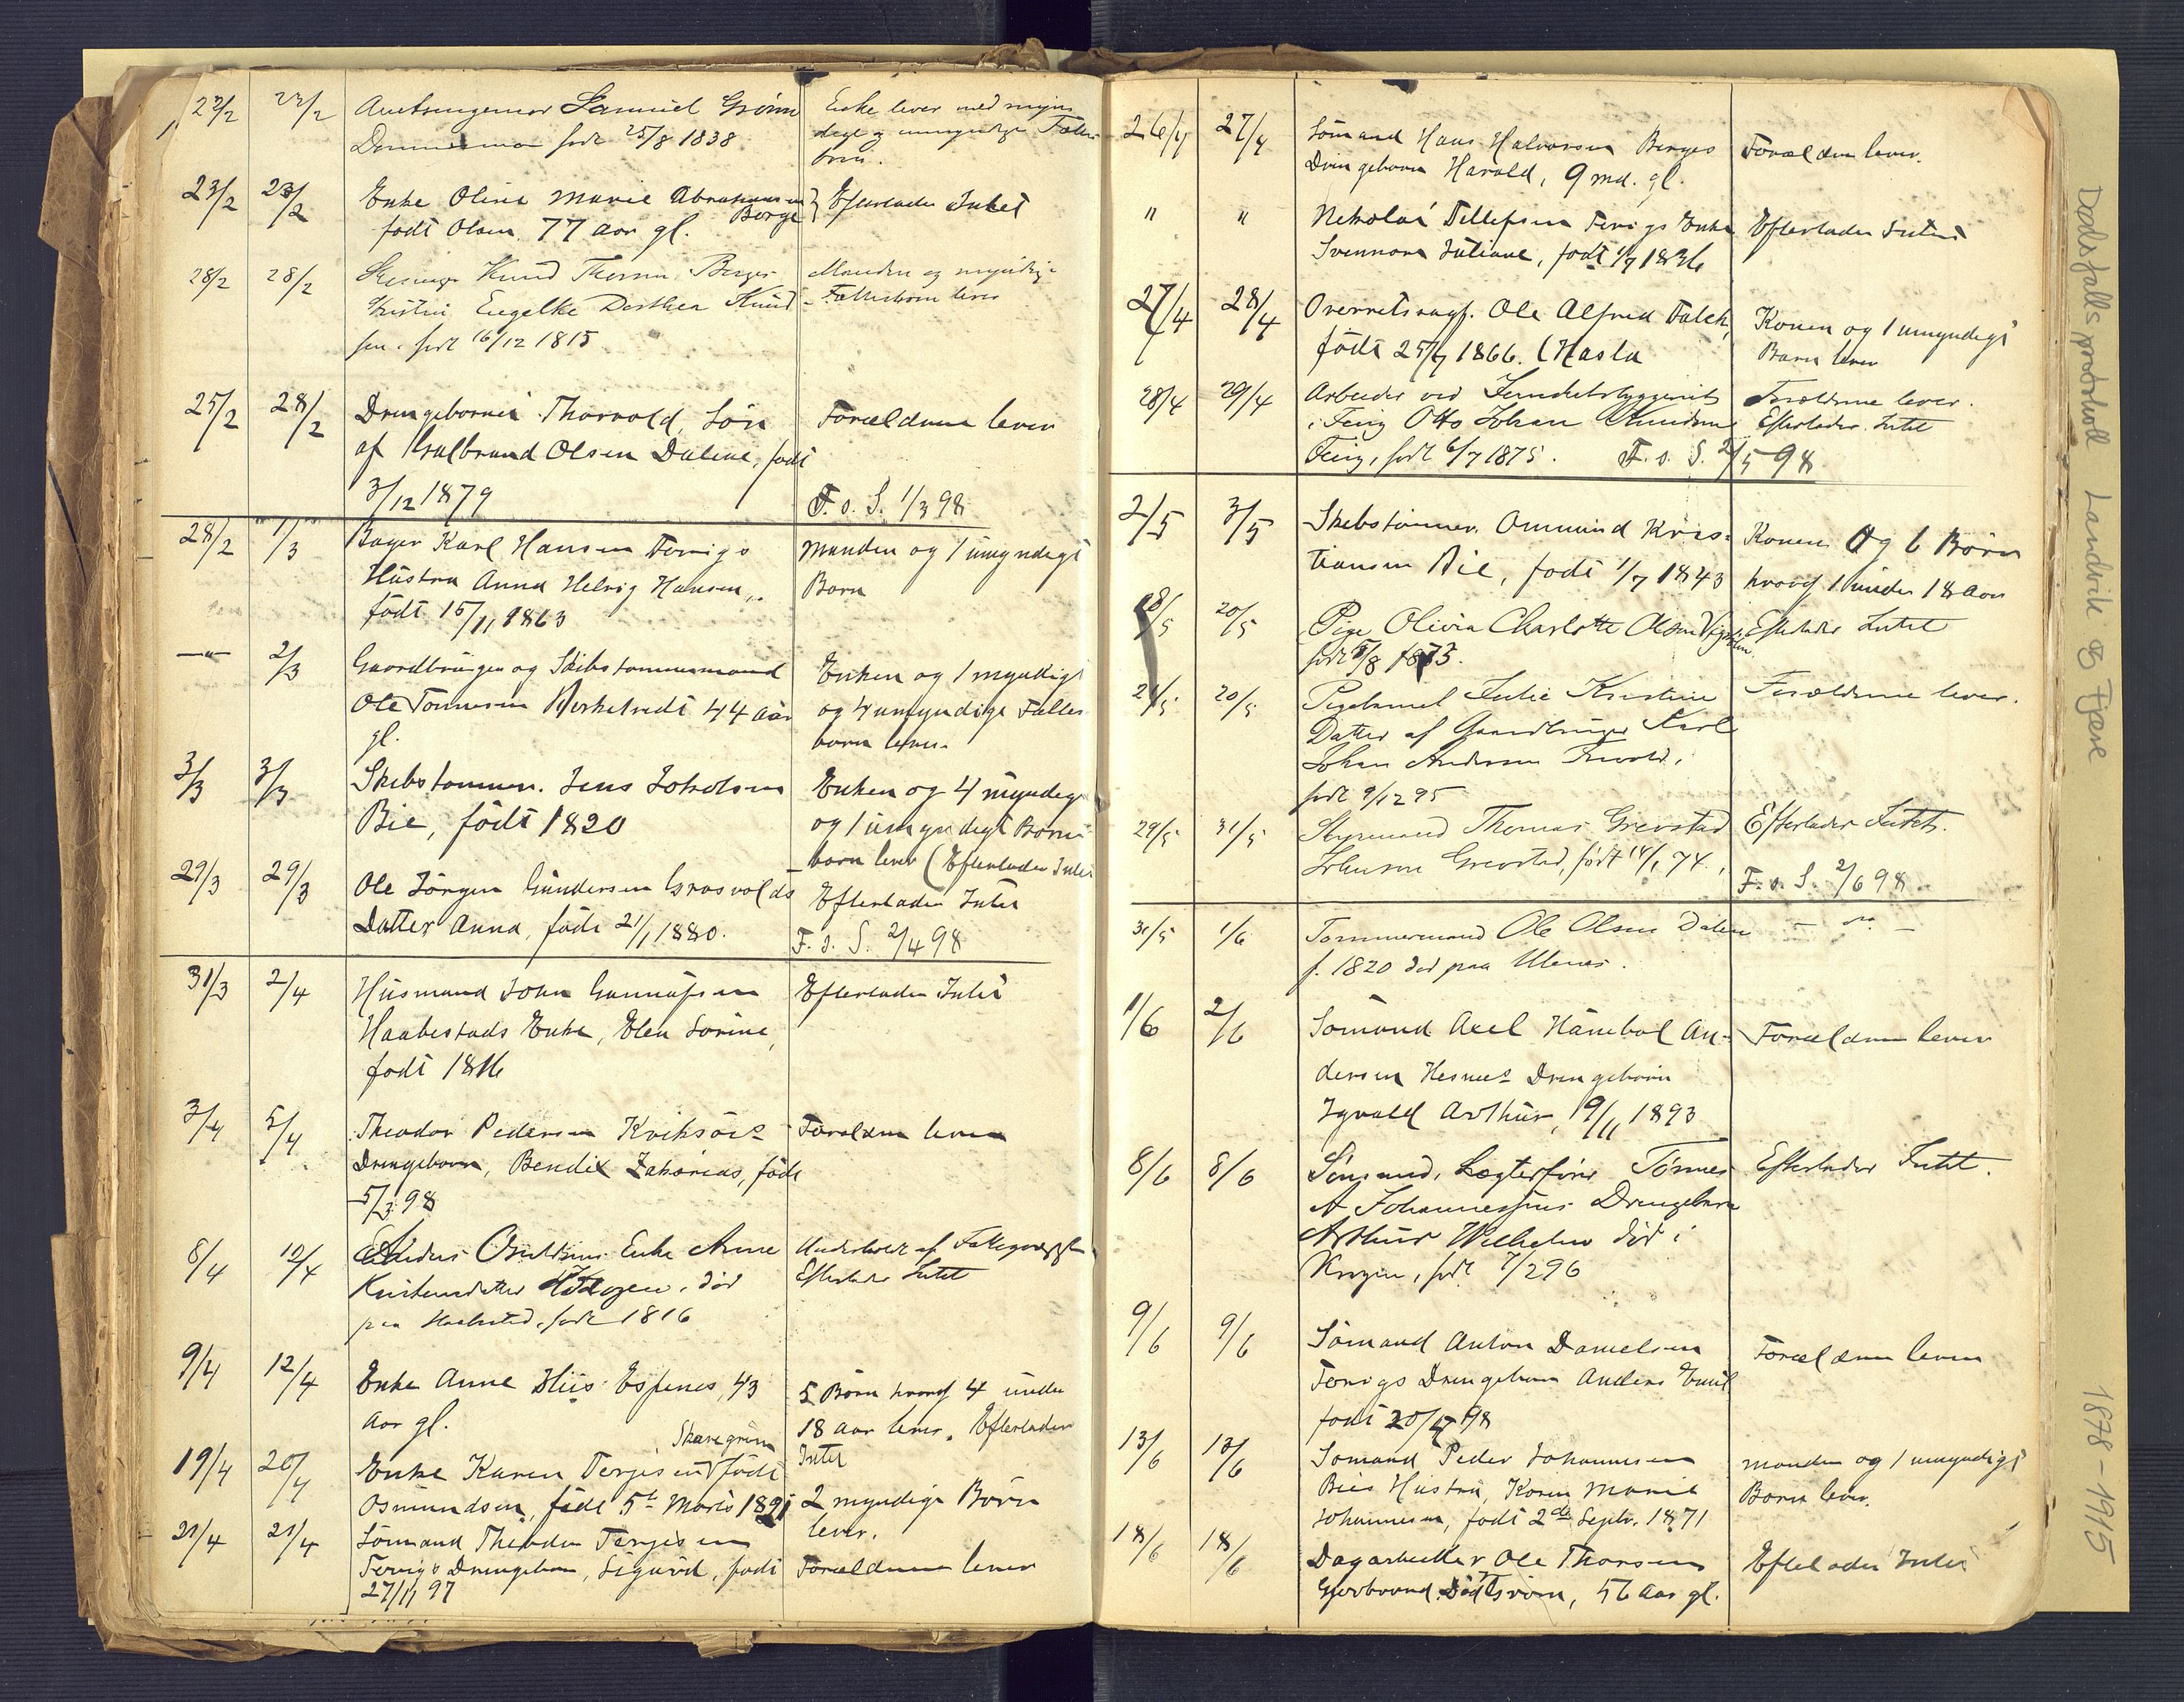 22/2 22/2 Amtsingeniør Samuel Grønn Enke lever med myn
født 25/8 1838 dige og umyndige Fælles
børn.
23/2 23/2 Enke Oline Marie Abrahamsen Efterlader Intet
Borge
født Olsen, 77 aar gl.
28/2 28/2 Knud Thomas Berges Manden og myndige
Hustru Engelke Dorthea Knud Fællesbørn lever
sen. født 16/12 1815
25/2 28/2 Drengebarnet Thorvold, Søn Forældrene lever
af Gulbrand Olsen Dalene, født
3/12 1879 F. o. S. 1/3 98
28/2 1/3 Bager Karl Hansen Fevigs Manden og 1 umyndigt
Hustru Anna Helvig Hansen, Barn
født 15/11 1863
—"— 2/3 Gaardbruger og Skibstømmermand Enken og 1 myndigt
Ole Tønnesen Birketvedt 44 aar og 4 umyndige Fælles
gl. børn lever.
3/3 3/3 Skibstømmerm. Jens Bie, født 1820 Enken og 4 myndige
og 1 umyndigt
lever (Efterlader Intet
29/3 29/3 Ole Jörgen Gundersen Grosvolds Efterlader Intet
Datter Anna, født 21/1 1880. F. o. S. 2/4 98
31/3 2/4 Husmand John Gunnufsen Efterlader Intet
Haabestads Enke, Elen Sörine,
født 1816
3/4 5/4 Theodor Pedersen Kviksöes Forældrene lever
Drengebarn, Bendix Zakarias, født
5/3 98
8/4 12/4 Anders Enke Anne Underholdt af Fattigvæsenet
Kristensdatter død Efterlader Intet
paa født 1816
9/4 12/4 Enke Anne Espenes, 43 5 Børn hvoraf 4 under
aar gl. 18 aar lever. Efterlader
Skaregrøm Intet
19/4 20/4 Enke Karen Terjesen født
Osmundsen, født 5te Marts 1821 2 myndige Børn
lever.
21/4 21/4 Sömand Theodor Terjesen
Fevigs Drengebarn, Sigurd, født Forældrene lever
27/11 97
26/4 27/4 Sömand Hans Halvorsen Berges Forældrene lever.
Drengebarn Harald, 9 md. gl.
" " Nikolai Tellefsen Fevigs Enke Efterlader Intet
Juliane, født 1/7 1836
27/4 28/4 Overretssagf. Ole Alfred Falck, Konen og 1 umyndigt
født 25/7 1866. (Hasla Barn lever
28/4 29/4 Arbeider ved Jernskibsbyggeriet Forældrene lever.
i Fevig Otto Johan Knudsen Efterlader Intet
Fevig, født 6/7 1875. F. o. S. 2/5 98
2/5 3/5 Skibstömmerm. Ommund Kris- Konen og 6 Børn
tiansen Bie, født 1/7 1843 hvoraf 1 under 18 aar
18/5 20/5 Pige Olivia Charlotte Olsen Efterlader Intet
født 5/8 1873.
21/5 20/5 Pigebarnet Julie Kristine Forældrene lever.
Datter af Gaardbruger Karl
Johan Andersen
født 9/12 95
29/5 31/5 Styrmand Thomas Grevstad Efterlader Intet.
Johnson Grevstad, født 14/1 74. F. o. S. 2/6 98
31/5 1/6 Tømmermand Ole Olsen Dalen — " —
f. 1820 død paa
1/6 2/6 Sömand Axel Hanibal An- Forældrene lever
dersen Hesnes Drengebarn
Arthur, 19/11 1893
8/6 8/6 Sömand, Lægterfører Tönnes Efterlader Intet.
A Johannessens Drengebarn
Arthur Wilhelm død i
født 7/2 96
9/6 9/6 Sömand Anton Danielsen Forældrene lever
Fevigs Drengebarn Anders Emil
født 20/4 98
13/6 13/6 Sömand Peder Johannesen Manden og 1 umyndigt
Bies Hustru, Karen Marie Barn lever.
Johannesen, født 2de Septr. 1871
18/6 18/6 Dagarbeider Ole Thorsen Efterlader Intet
56 aar gl.
Dødsfallsprotokoll Landvik og Fjære 1878-1915